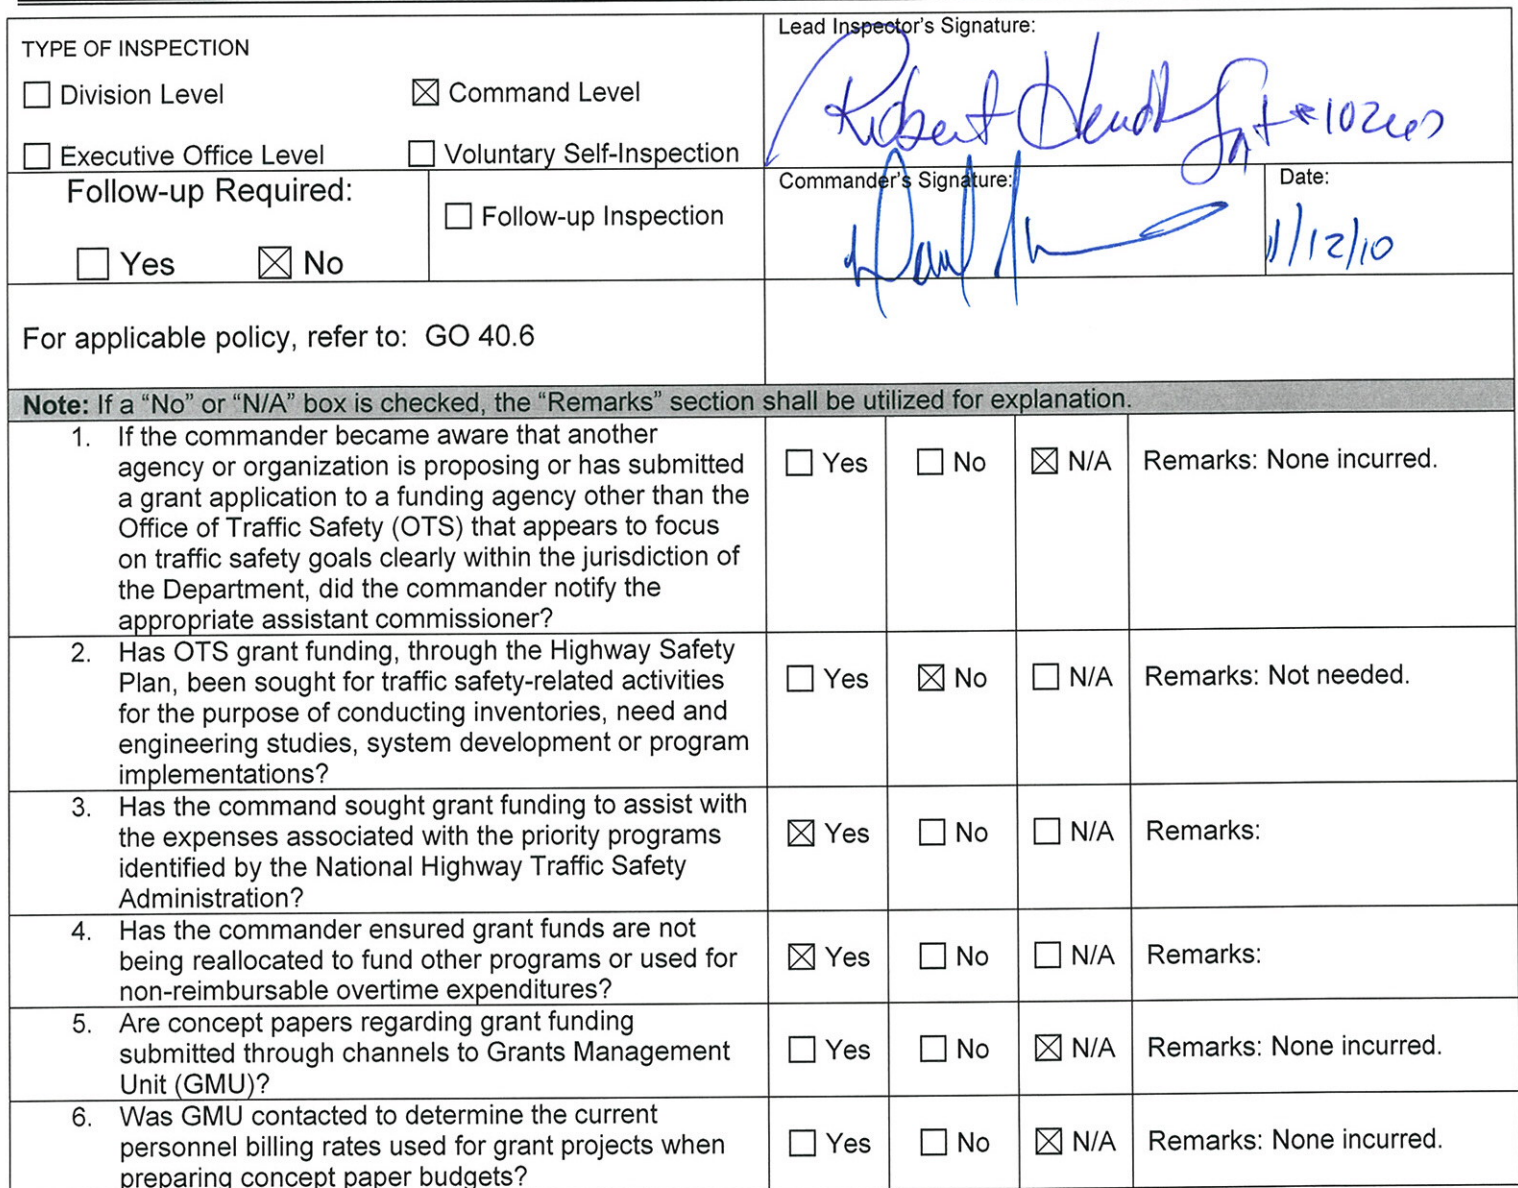 TYPE OF INSPECTION
☐ Division Level ☒ Command Level
☐ Executive Office Level ☐ Voluntary Self-Inspection
Lead Inspector's Signature:
Robert
Follow-up Required:
☐ Yes ☒ No
☐ Follow-up Inspection
Commander's Signature:
Date:
1/12/10
For applicable policy, refer to: GO 40.6
Note: If a “No” or “N/A” box is checked, the “Remarks” section shall be utilized for explanation.
1. If the commander became aware that another
agency or organization is proposing or has submitted
a grant application to a funding agency other than the
Office of Traffic Safety (OTS) that appears to focus
on traffic safety goals clearly within the jurisdiction of
the Department, did the commander notify the
appropriate assistant commissioner?
☐ Yes ☐ No ☒ N/A Remarks: None incurred.
2. Has OTS grant funding, through the Highway Safety
Plan, been sought for traffic safety-related activities
for the purpose of conducting inventories, need and
engineering studies, system development or program
implementations?
☐ Yes ☒ No ☐ N/A Remarks: Not needed.
3. Has the command sought grant funding to assist with
the expenses associated with the priority programs
identified by the National Highway Traffic Safety
Administration?
☒ Yes ☐ No ☐ N/A Remarks:
4. Has the commander ensured grant funds are not
being reallocated to fund other programs or used for
non-reimbursable overtime expenditures?
☒ Yes ☐ No ☐ N/A Remarks:
5. Are concept papers regarding grant funding
submitted through channels to Grants Management
Unit (GMU)?
☐ Yes ☐ No ☒ N/A Remarks: None incurred.
6. Was GMU contacted to determine the current
personnel billing rates used for grant projects when
preparing concept paper budgets?
☐ Yes ☐ No ☒ N/A Remarks: None incurred.